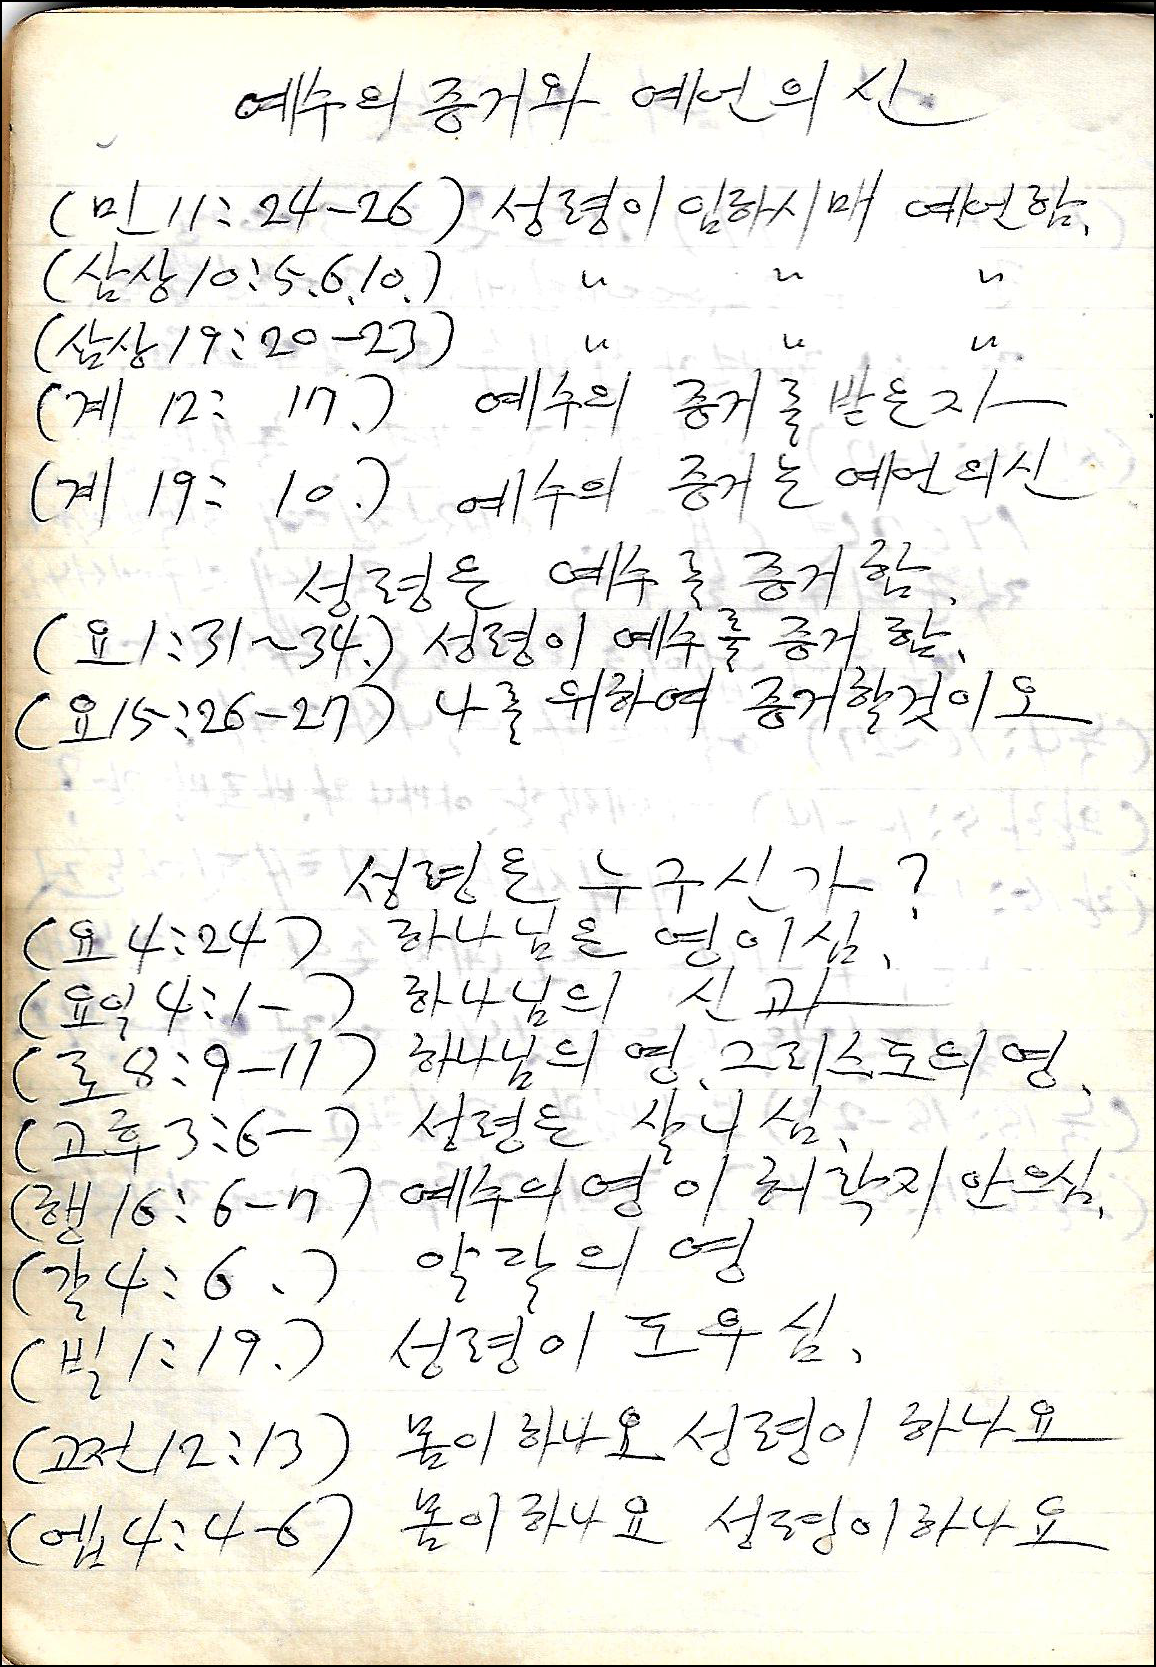 예수의 증거와 예언의 신
(민 11:24-26) 성령이 임하시매 예언함.
(삼상 10:5.6.10.) 〃 〃 〃
(삼상 19:20-23) 〃 〃 〃
(계 12: 17.) 예수의 증거를 받은지—
(계 19: 10.) 예수의 증거는 예언의신
성령은 예수를 증거함.
(요 1:31~34.) 성령이 예수를 증거함.
(요15:26-27) 나를 위하여 증거할것이오
성령은 누구신가?
(요 4:24) 하나님은 영이심.
(요일 4:1-) 하나님의 신과—
(로 8:9-11) 하나님의 영. 그리스도의 영.
(고후 3:6-) 성령은 살니심.
(행 16: 6-7) 예수의 영이 허락지 안으심.
(갈 4: 6.) 아들의 영
(빌 1:19.) 성령이 도우심.
(고전 12:13) 몸이 하나요 성령이 하나요
(엡 4:4-6) 몸이 하나요 성령이하나요